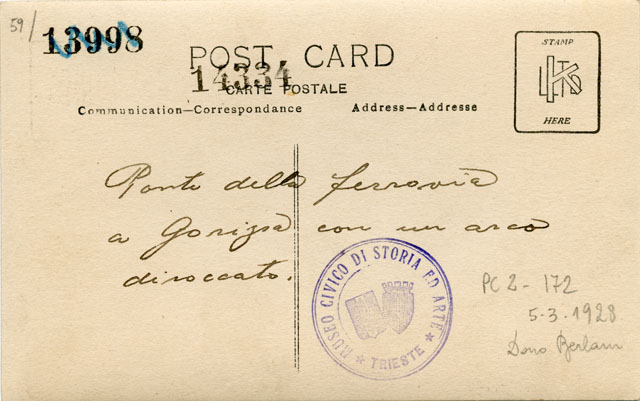 59/
13998
POST CARD
14334
CARTE POSTALE
Communication—Correspondance
Address—Addresse
STAMP
HERE
Ponte della ferrovia
a Gorizia con un arco
diroccato.
MUSEO CIVICO DI STORIA ED ARTE
* TRIESTE *
PC 2 - 172
5-3-1928
Dono Berlam